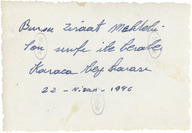 Bursa Ziraat Mektebi
Son sınıfı ile beraber
Karaca Bey harası
22 - Nisan - 1946